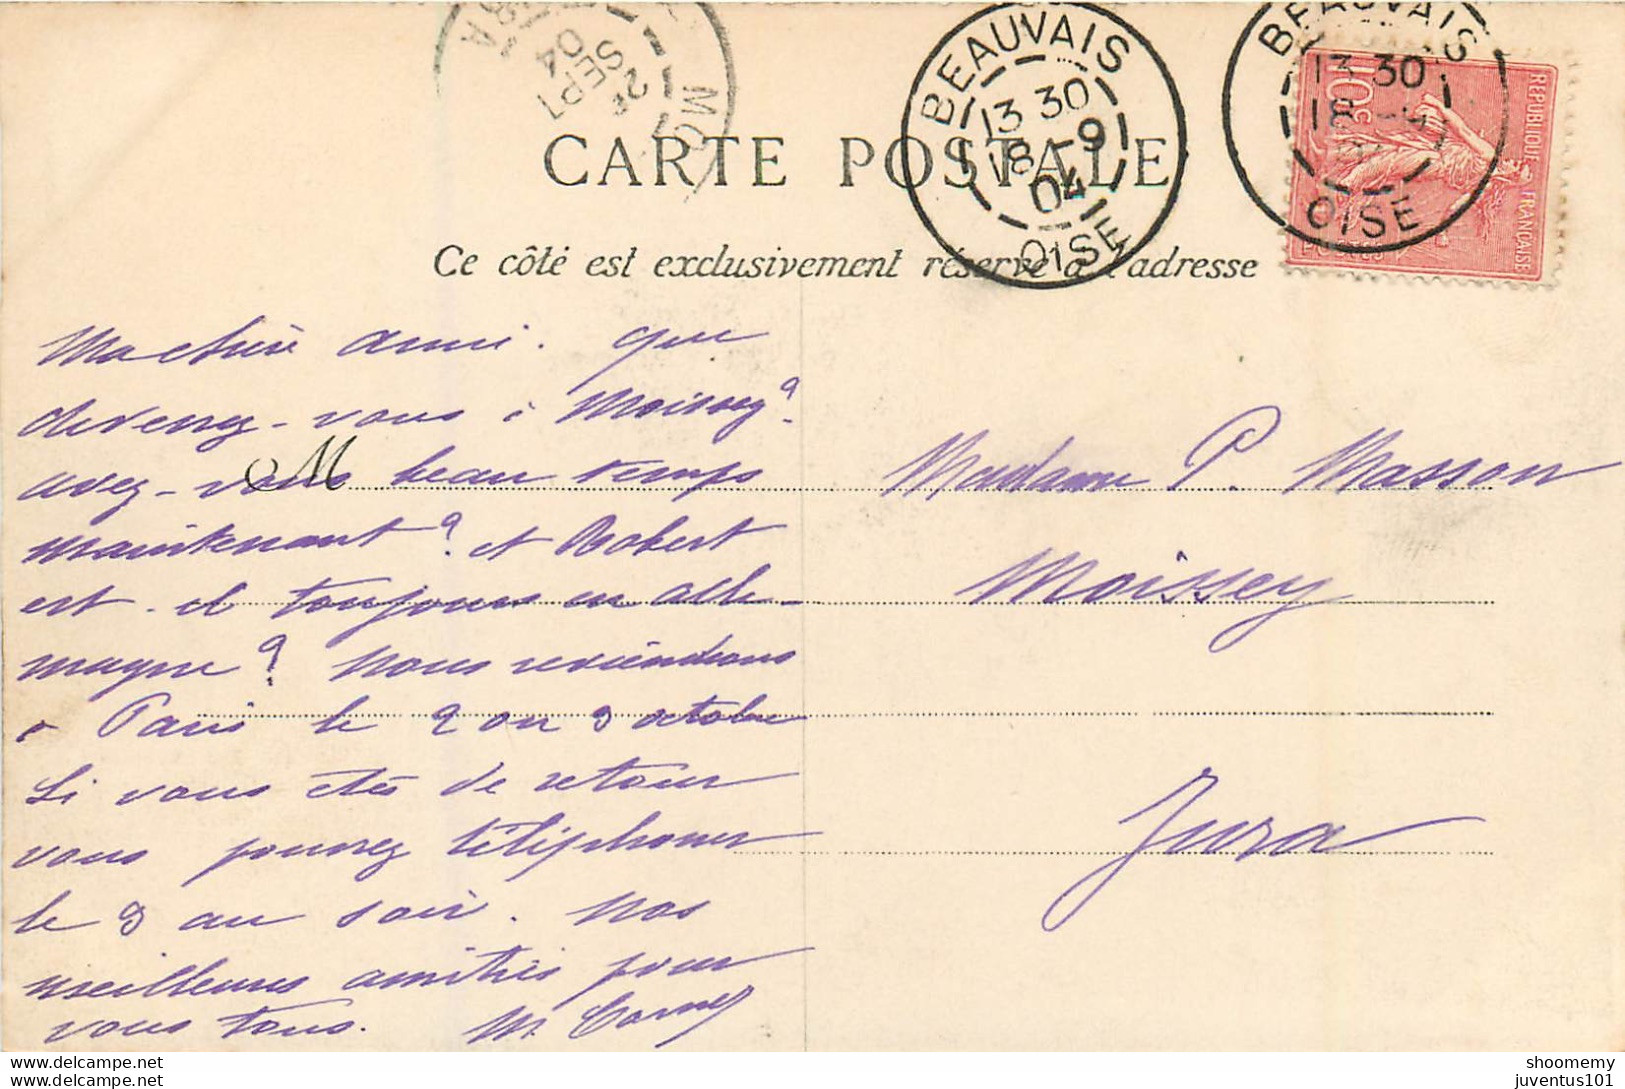 BEAUVAIS
13 30
18 -9
04
OISE
BEAUVAIS
13 30
18
OISE
REPUBLIQUE FRANCAISE
10c
POSTES
2e
SEPT
04
CARTE POSTALE
Ce côté est exclusivement réservé à l'adresse
Ma chère amie. que
devenez-vous à Moissey?
avez-vous beau temps
M
maintenant? et Robert
est-il toujours en alle-
magne? nous reviendrons
à Paris le 2 ou 3 octobre
Si vous êtes de retour
vous pourrez téléphoner
le 3 au soir. nos
meilleures amitiés pour
vous tous. M.
Madame P. Masson
Moissey
Jura
shoomemy
juventus101